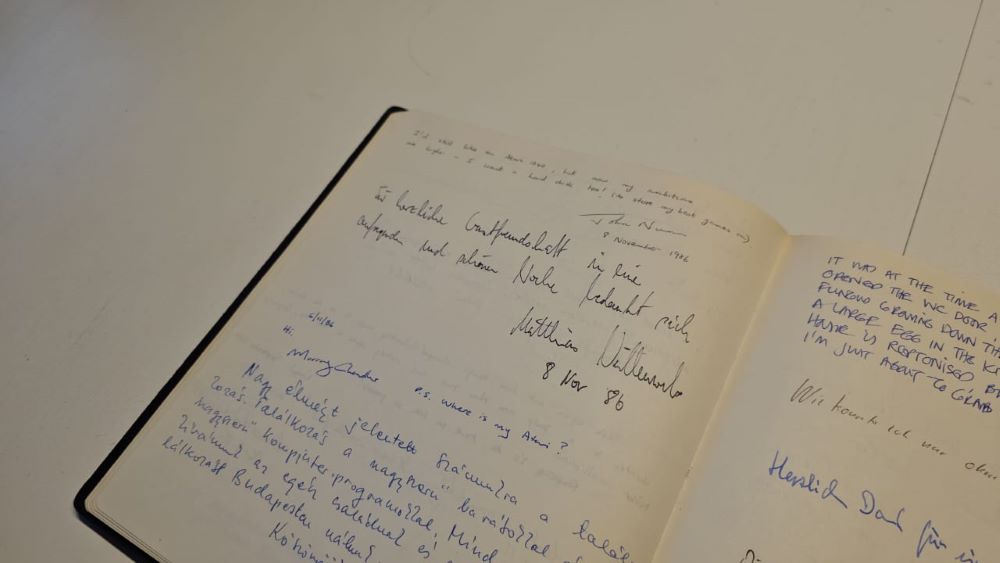 I'd still like an Atari 1040, but now my ambitions
are higher - I want a hard disk too! (to store my best games on)
John Nunn
8 November 1986
für herzliche Gastfreundschaft in eine
aufregenden und schönen Woche bedankt sich
Matthias Wüllenweber
8 Nov '86
6/11/86
Hi
Murray Chandler p.s. where is my Atari?
Nagy élményt jelentett számunkra a talál-
kozás. Találkozás a "nagyszerű" barátokkal
"nagyszerű" kompjuter-programokkal. Mind
az egész családnak és
lálkozást Budapesten nálunk
IT WAS AT THE TIME A
OPENED THE WC DOOR
FUNGUS GROWING DOWN TH
A LARGE EGG IN THE KI
HOUSE IS
I'M JUST ABOUT TO GRAB
Wie konnte ich nur ohne
Herzlich Dank für